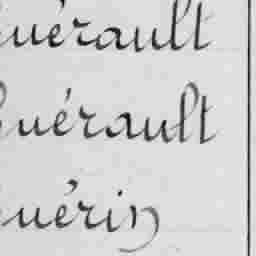 Guérault
Guérault
Guérin